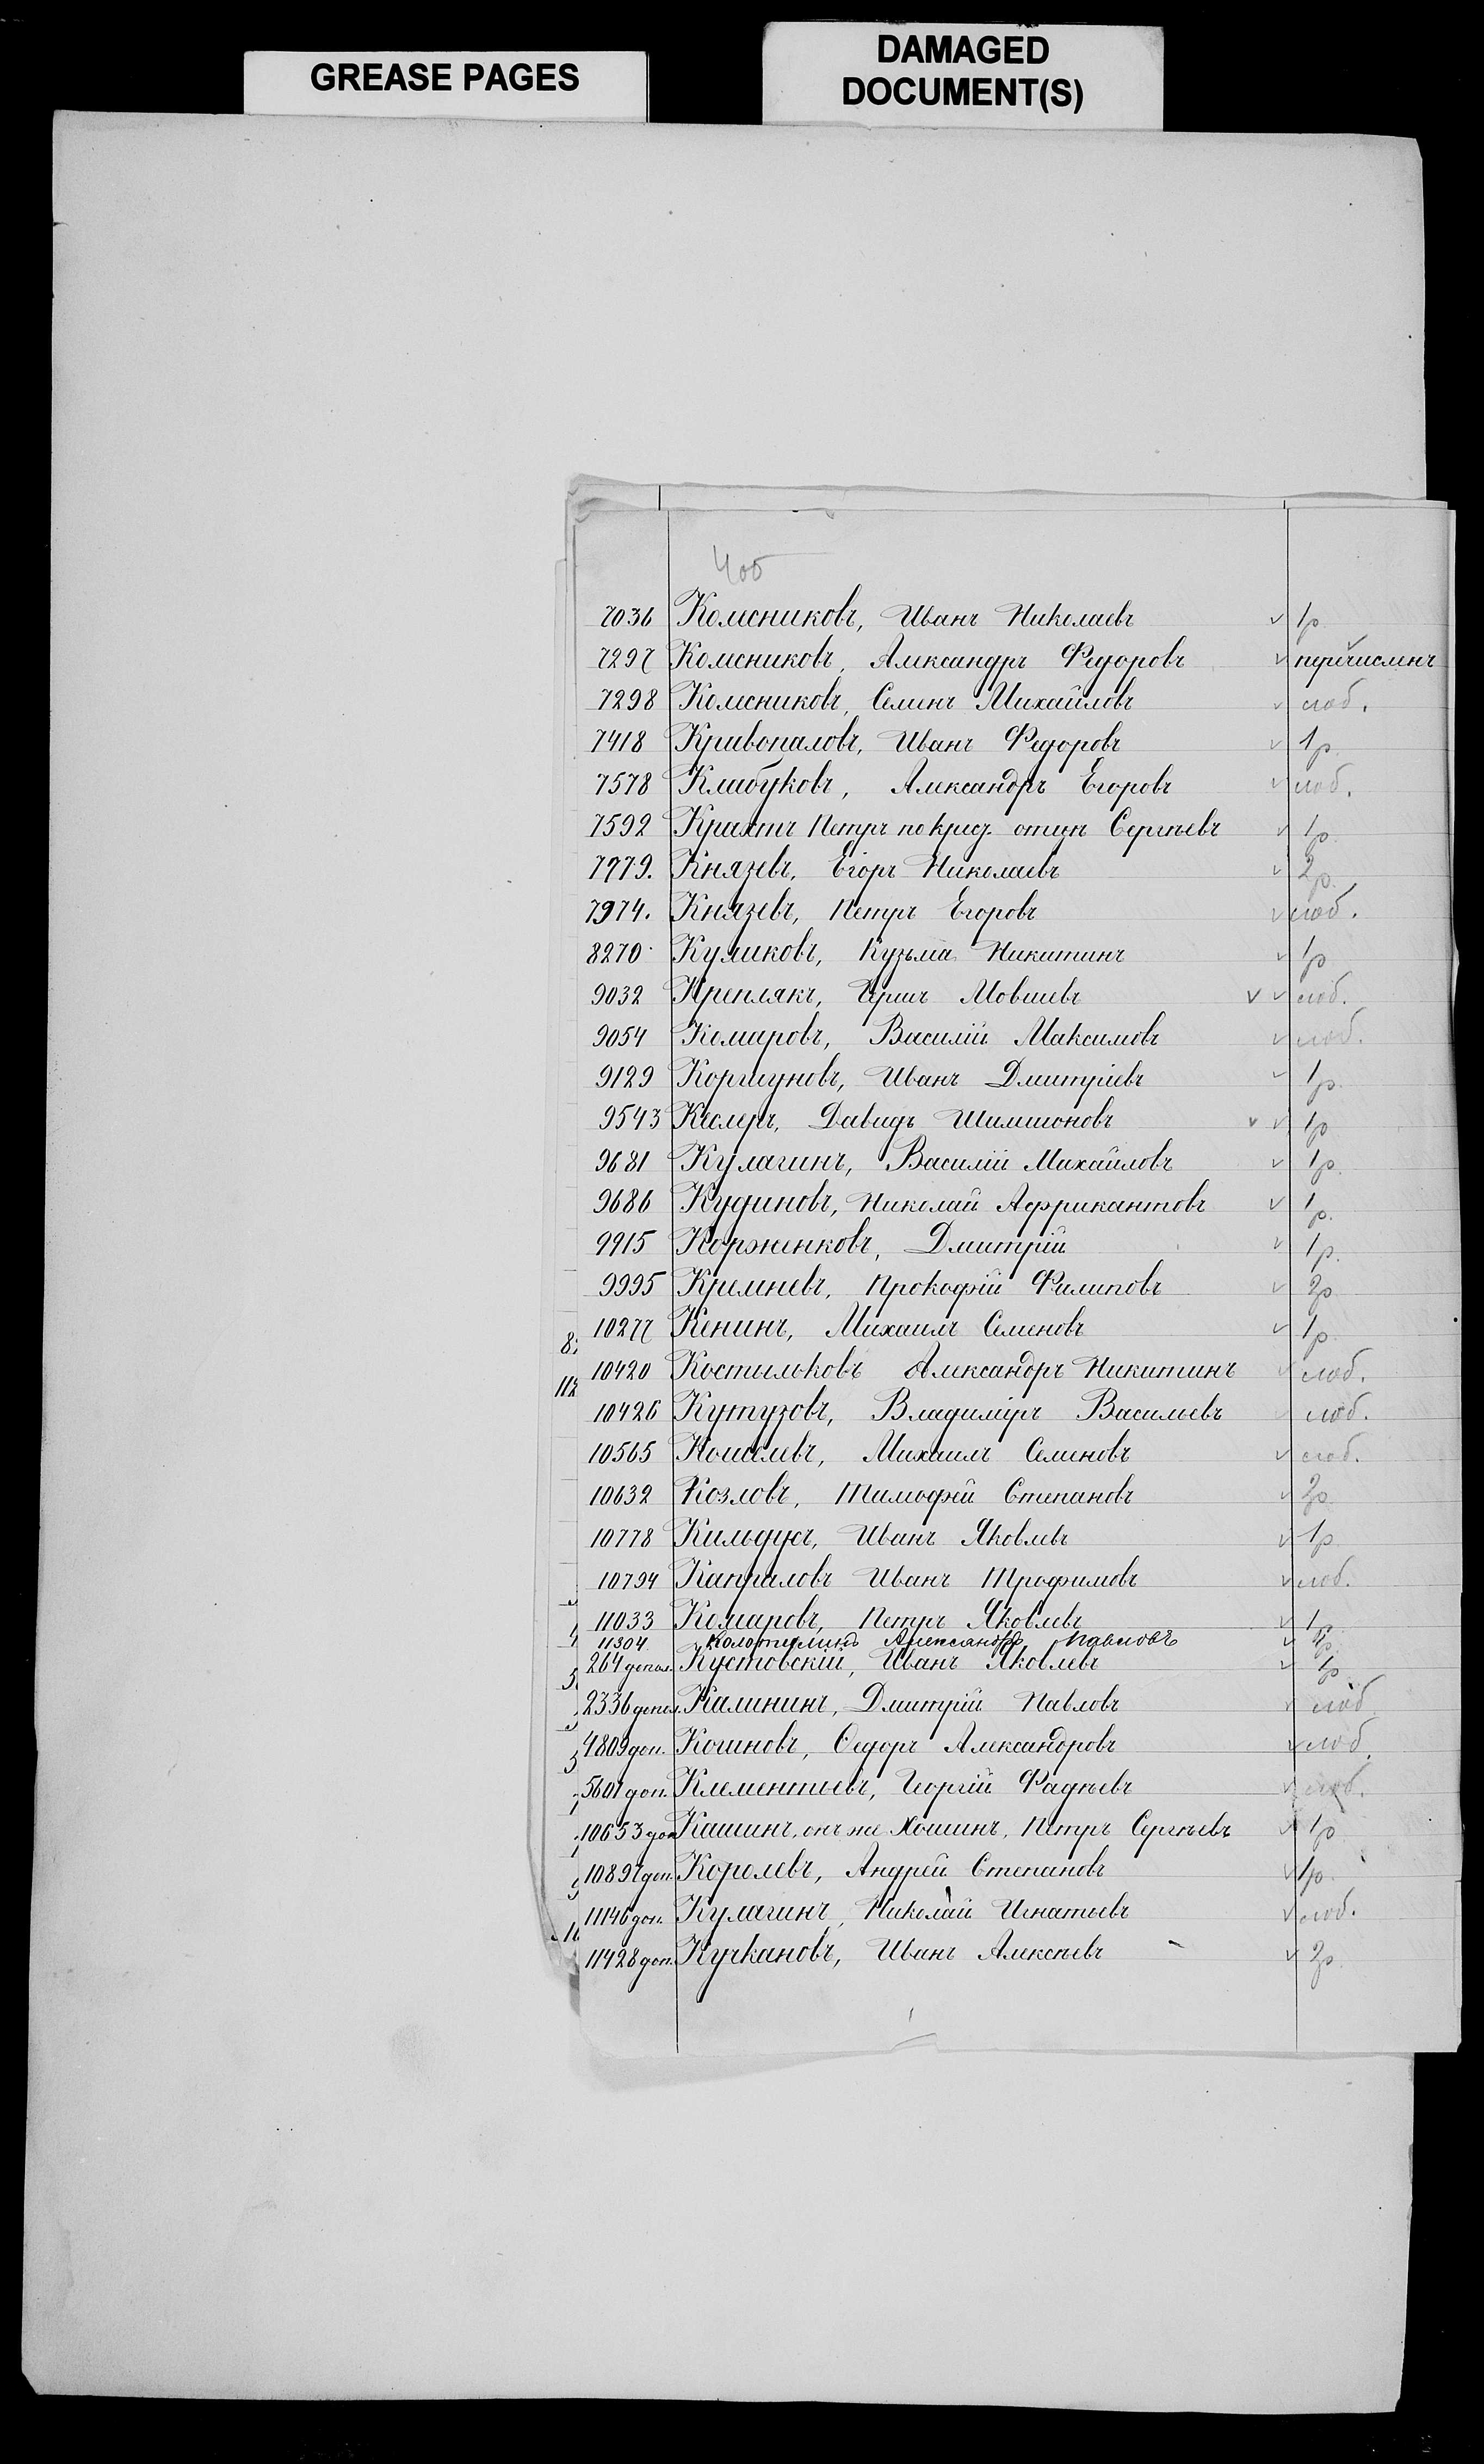 GREASE PAGES
DAMAGED
DOCUMENT(S)
7036 Колесниковъ, Иванъ Николаевъ 1р
7297 Колесниковъ, Александръ Федоровъ перечисленъ
7298 Колесниковъ, Семенъ Михайловъ слоб.
7418 Кривопаловъ, Иванъ Федоровъ 1р
7578 Клабуковъ, Александръ Егоровъ слоб.
7592 Крахтъ Петръ по крест. отцу Сергѣевъ 1р.
7979. Князевъ, Егоръ Николаевъ 2р.
7974. Князевъ, Петръ Егоровъ слоб.
8270 Куликовъ, Кузьма Никитинъ 1р
9032 Креплякъ, Гершъ Мовшевъ слоб.
9054 Комаровъ, Василій Максимовъ слоб.
9129 Коршуновъ, Иванъ Дмитріевъ 1р.
9543 Кеслеръ, Давидъ Шимшоновъ 1р
9681 Кулагинъ, Василій Михайловъ 1р.
9686 Кудиновъ, Николай Африкантовъ 1р.
9915 Корженковъ, Дмитрій 1р.
9995 Кремневъ, Прокофій Филиповъ 2р
10277 Кенинъ, Михаилъ Семеновъ 1р
10420 Костыльковъ Александръ Никитинъ слоб.
10426 Кутузовъ, Владиміръ Васильевъ слоб.
10565 Кошелевъ, Михаилъ Семеновъ слоб.
10632 Козловъ, Тимофей Степановъ 2р
10778 Кильдусъ, Иванъ Яковлевъ 1р
10794 Капраловъ Иванъ Трофимовъ слоб.
11033 Комаровъ, Петръ Яковлевъ 1р
11304 Колотилинъ Александръ Павловъ
264 допол. Кустовскій, Иванъ Яковлевъ 1р
2336 допол. Калининъ, Дмитрій Павловъ слоб
4809 доп. Кочиновъ, Ѳедоръ Александровъ слоб.
5607 доп. Клементьевъ, Георгій Фадѣевъ слоб.
10653 доп Кашинъ, онъ же Хошинъ, Петръ Сергѣевъ 1р
10897 доп. Королевъ, Андрей Степановъ 1р.
11146 доп. Кулагинъ, Николай Игнатьевъ слоб.
11428 доп. Кучкановъ, Иванъ Алексѣевъ 2р